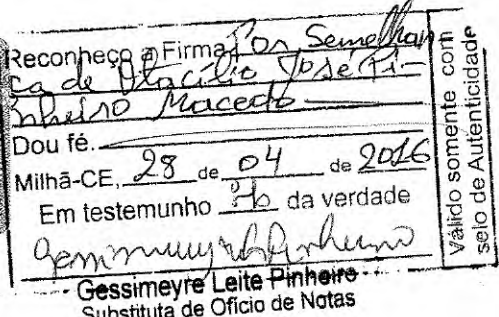 Reconheço a Firma Por Semelhan
ça de Otacílio José Pi-
nheiro Macedo
Dou fé.
Milhã-CE, 28 de 04 de 2016
Em testemunho da verdade
Gessimeyre Leite Pinheiro
Substituta de Ofício de Notas
Válido somente com
selo de Autenticidade